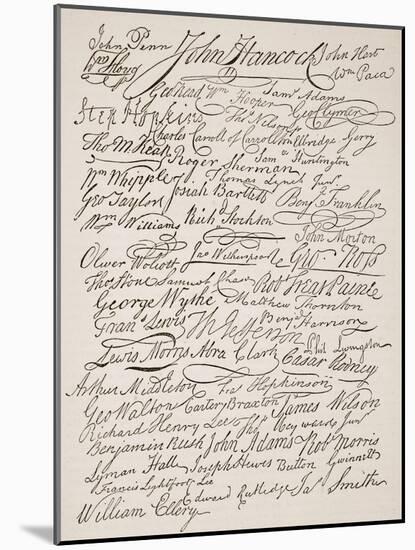 John Penn John Hancock John Hart
Wm Floyd Wm Paca
Geo Read Wm Hooper Saml Adams
Step Hopkins Thos Nelson jr Geo Clymer
Charles Carroll of Carrollton Elbridge Gerry
Tho M:Kean Roger Sherman Sam Huntington
Wm Whipple Thomas Lynch Junr
Geo Taylor Josiah Bartlett Benj Franklin
Wm Williams Richd Stockton John Morton
Oliver Wolcott Jno Witherspoon Geo Ross
Thos Stone Samuel Chase Robt Treat Paine
George Wythe Matthew Thornton
Frans Lewis Th Jefferson Benj Harrison
Lewis Morris Abra Clark Phil Livingston
Cæsar Rodney
Arthur Middleton Fras Hopkinson
Geo Walton Carter Braxton James Wilson
Richard Henry Lee Thos Heyward Junr
Benjamin Rush John Adams Robt Morris
Lyman Hall Joseph Hewes Button Gwinnett
Francis Lightfoot Lee
William Ellery Edward Rutledge Jas Smith